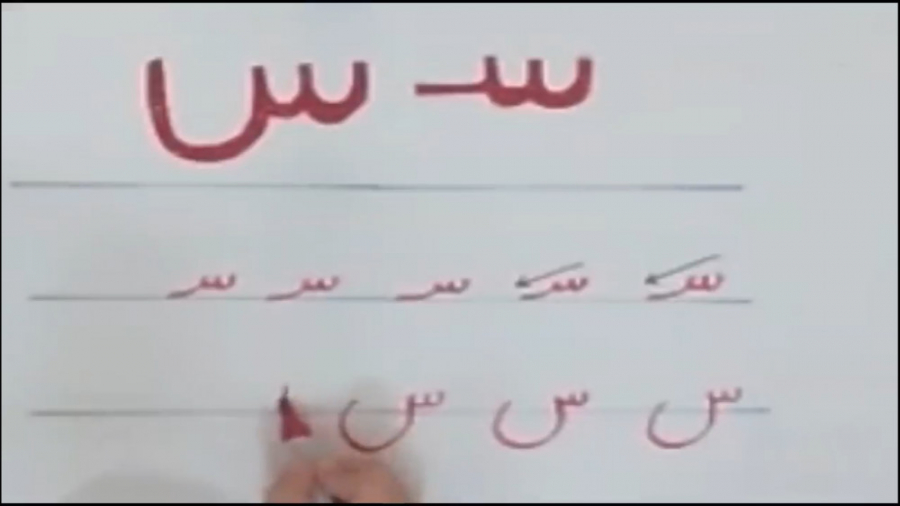 سـ س
سـ سـ سـ سـ سـ
س س س